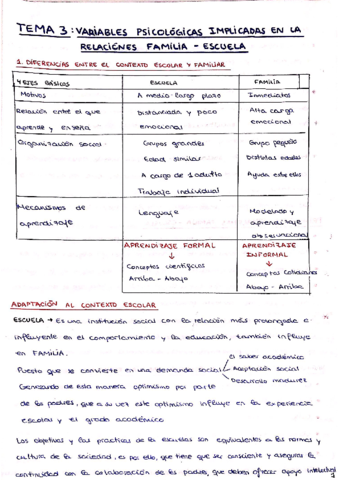 TEMA 3: VARIABLES PSICOLÓGICAS IMPLICADAS EN LA
RELACIONES FAMILIA - ESCUELA
1. DIFERENCIAS ENTRE EL CONTEXTO ESCOLAR Y FAMILIAR
4 EJES BÁSICOS ESCUELA FAMILIA
Motivos A medio-largo plazo Inmediatos
Relación entre el que aprende y enseña Distanciada y poco emocional Alta carga emocional
Organización social Grupos grandes Grupo pequeño
Edad similar Distintas edades
A cargo de 1 adulto Ayuda entre ellos
Trabajo individual
Mecanismos de aprendizaje Lenguaje Modelado y aprendizaje observacional
APRENDIZAJE FORMAL APRENDIZAJE INFORMAL
↓ ↓
Conceptos científicos Conceptos cotidianos
Arriba - Abajo Abajo - Arriba
ADAPTACIÓN AL CONTEXTO ESCOLAR
ESCUELA → Es una institución social con la relación más prolongada e
influyente en el comportamiento y la educación, también influye
en FAMILIA.
El saber académico
Puesto que se convierte en una demanda social Adaptación social
Desarrollo
Generando de esta manera optimismo por parte
de los padres, que a su vez este optimismo influye en la experiencia
escolar y el grado académico
Los objetivos y las prácticas de la escuelas son equivalentes a las normas y
cultura de la sociedad, es por ello, que tiene que ser consciente y asegurar la
continuidad con la colaboración de los padres, que deben ofrecer apoyo intelectual